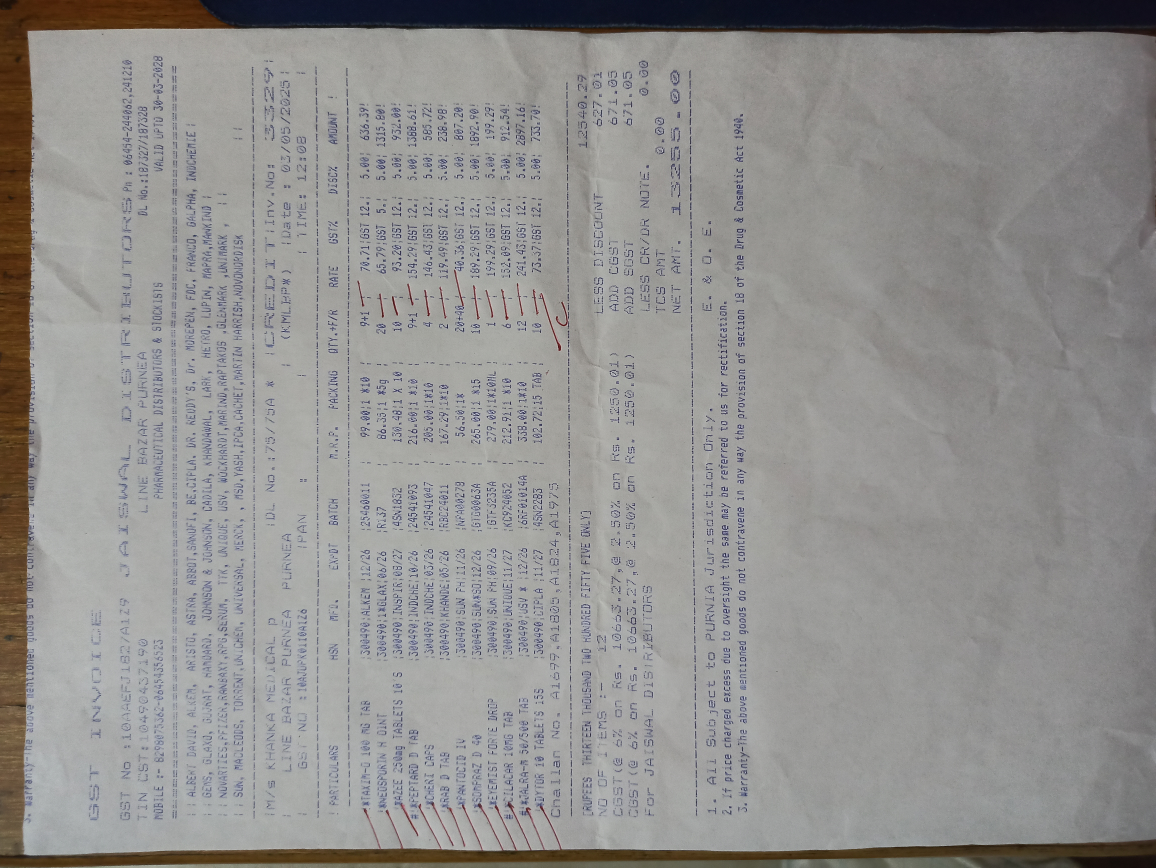 3. Warranty-The above mentioned goods do not contravene in any way the provision of section 18 of the
GST INVOICE
GST No :10AAEFJ1827A1Z9 JAISWAL DISTRIBUTORS Ph : 06454-244062,241210
TIN CST:10490437190 LINE BAZAR PURNEA DL No.:187327/187328
MOBILE :- 8298075362-06454356523 PHARMACEUTICAL DISTRIBUTORS & STOCKISTS VALID UPTO 30-03-2028
| ALBERT DAVID, ALKEM, ARISTO, ASTRA, ABBOT,SANOFI, BE,CIPLA, DR. REDDY'S, Dr. MOREPEN, FDC, FRANCO, GALPHA, INDCHEMIE|
| GENS, GLAXO, GUJRAT, MANUARD, JOHNSON & JOHNSON, CADILA, KHANDAWAL, LARK, HETRO, LUPIN, MAPRA,MANKIND |
| NOVARTIES,PFIZER,RANBAXY,RPG,SERUM, TTK, UNIQUE, USV, WOCKHARDT,MARIND,RAPTAKOS ,GLENMARK ,UNIMARK , ||
| SUN, MACLEODS, TORRENT,UNICHEM, UNIVERSAL, MERCK, , MSD,YASH,IPCA,CACHET,MARTIN HARRISH,NOVONORDISK ||
|M/s KHANKA MEDICAL p |DL No.:75/75A * |CREDIT|Inv.No: 3329|
| LINE BAZAR PURNEA PURNEA | (KMLBP*) |Date : 03/05/2025|
| GST NO :10AJUPK0110A1Z6 |PAN : | | TIME: 12:08 |
| PARTICULARS HSN MFG. EXPDT BATCH M.R.P. PACKING QTY.+F/R RATE GST% DISC% AMOUNT |
*TAXIM-O 100 MG TAB |300490|ALKEM |12/26 |25460011 | 99.00|1 *10 | 9+1 | 70.71|GST 12.| 5.00| 636.39|
*NEOSPORIN H OINT |300490|1*GLAX|06/26 |RL37 | 86.35|1 *5g | 20 | 65.79|GST 5.| 5.00| 1315.80|
*AZEE 250mg TABLETS 10'S |300490|INSPIR|08/27 |4SN1832 | 130.48|1 X 10 | 10 | 93.20|GST 12.| 5.00| 932.00|
#*PEPTARD D TAB |300490|INDCHE|10/26 |24541093 | 216.00|1 *10 | 9+1 | 154.29|GST 12.| 5.00| 1388.61|
*CHERI CAPS |300490|INDCHE|03/26 |24541047 | 205.00|1*10 | 4 | 146.43|GST 12.| 5.00| 585.72|
*RAB D TAB |300490|KHANDE|05/26 |RBC24011 | 167.29|1*10 | 2 | 119.49|GST 12.| 5.00| 238.98|
*PANTOCID IV |300490|SUN PH|11/26 | 56.50|1* | 20+40 | 40.36|GST 12.| 5.00| 807.20|
*SOMPRAZ D 40 |300490|SUN*SO|12/26 |GTG0063A | 265.00|1 *15 | 10 | 189.29|GST 12.| 5.00| 1892.90|
*ETEMIST FORTE DROP |300490|SUN PH|09/26 |GTF3235A | 279.00|1*10ML | 1 | 199.29|GST 12.| 5.00| 199.29|
#*CILACAR 10MG TAB |300490|UNIQUE|11/27 |KC924052 | 212.91|1 *10 | 6 | 152.09|GST 12.| 5.00| 912.54|
*JALRA-M 50/500 TAB |300490|USV * |12/26 |6RF01014A | 338.00|1*10 | 12 | 241.43|GST 12.| 5.00| 2897.16|
*DYTOR 10 TABLETS 15S |300490|CIPLA |11/27 |4SN2283 | 102.72|15 TAB | 10 | 73.37|GST 12.| 5.00| 733.70|
Challan No. A1699,A1805,A1824,A1975
[RUPEES THIRTEEN THOUSAND TWO HUNDRED FIFTY FIVE ONLY] 12540.29
NO OF ITEMS :- 12 LESS DISCOUNT 627.01
CGST(@ 6% on Rs. 10663.27,@ 2.50% on Rs. 1250.01) ADD CGST 671.05
CGST(@ 6% on Rs. 10663.27,@ 2.50% on Rs. 1250.01) ADD SGST 671.05
For JAISWAL DISTRIBUTORS LESS CR/DR NOTE. 0.00
TCS AMT 0.00
NET AMT. 13255.00
1. All Subject to PURNIA Jurisdiction Only. E. & O. E.
2. If price charged excess due to oversight the same may be referred to us for rectification.
3. Warranty-The above mentioned goods do not contravene in any way the provision of section 18 of the Drug & Cosmetic Act 1940.